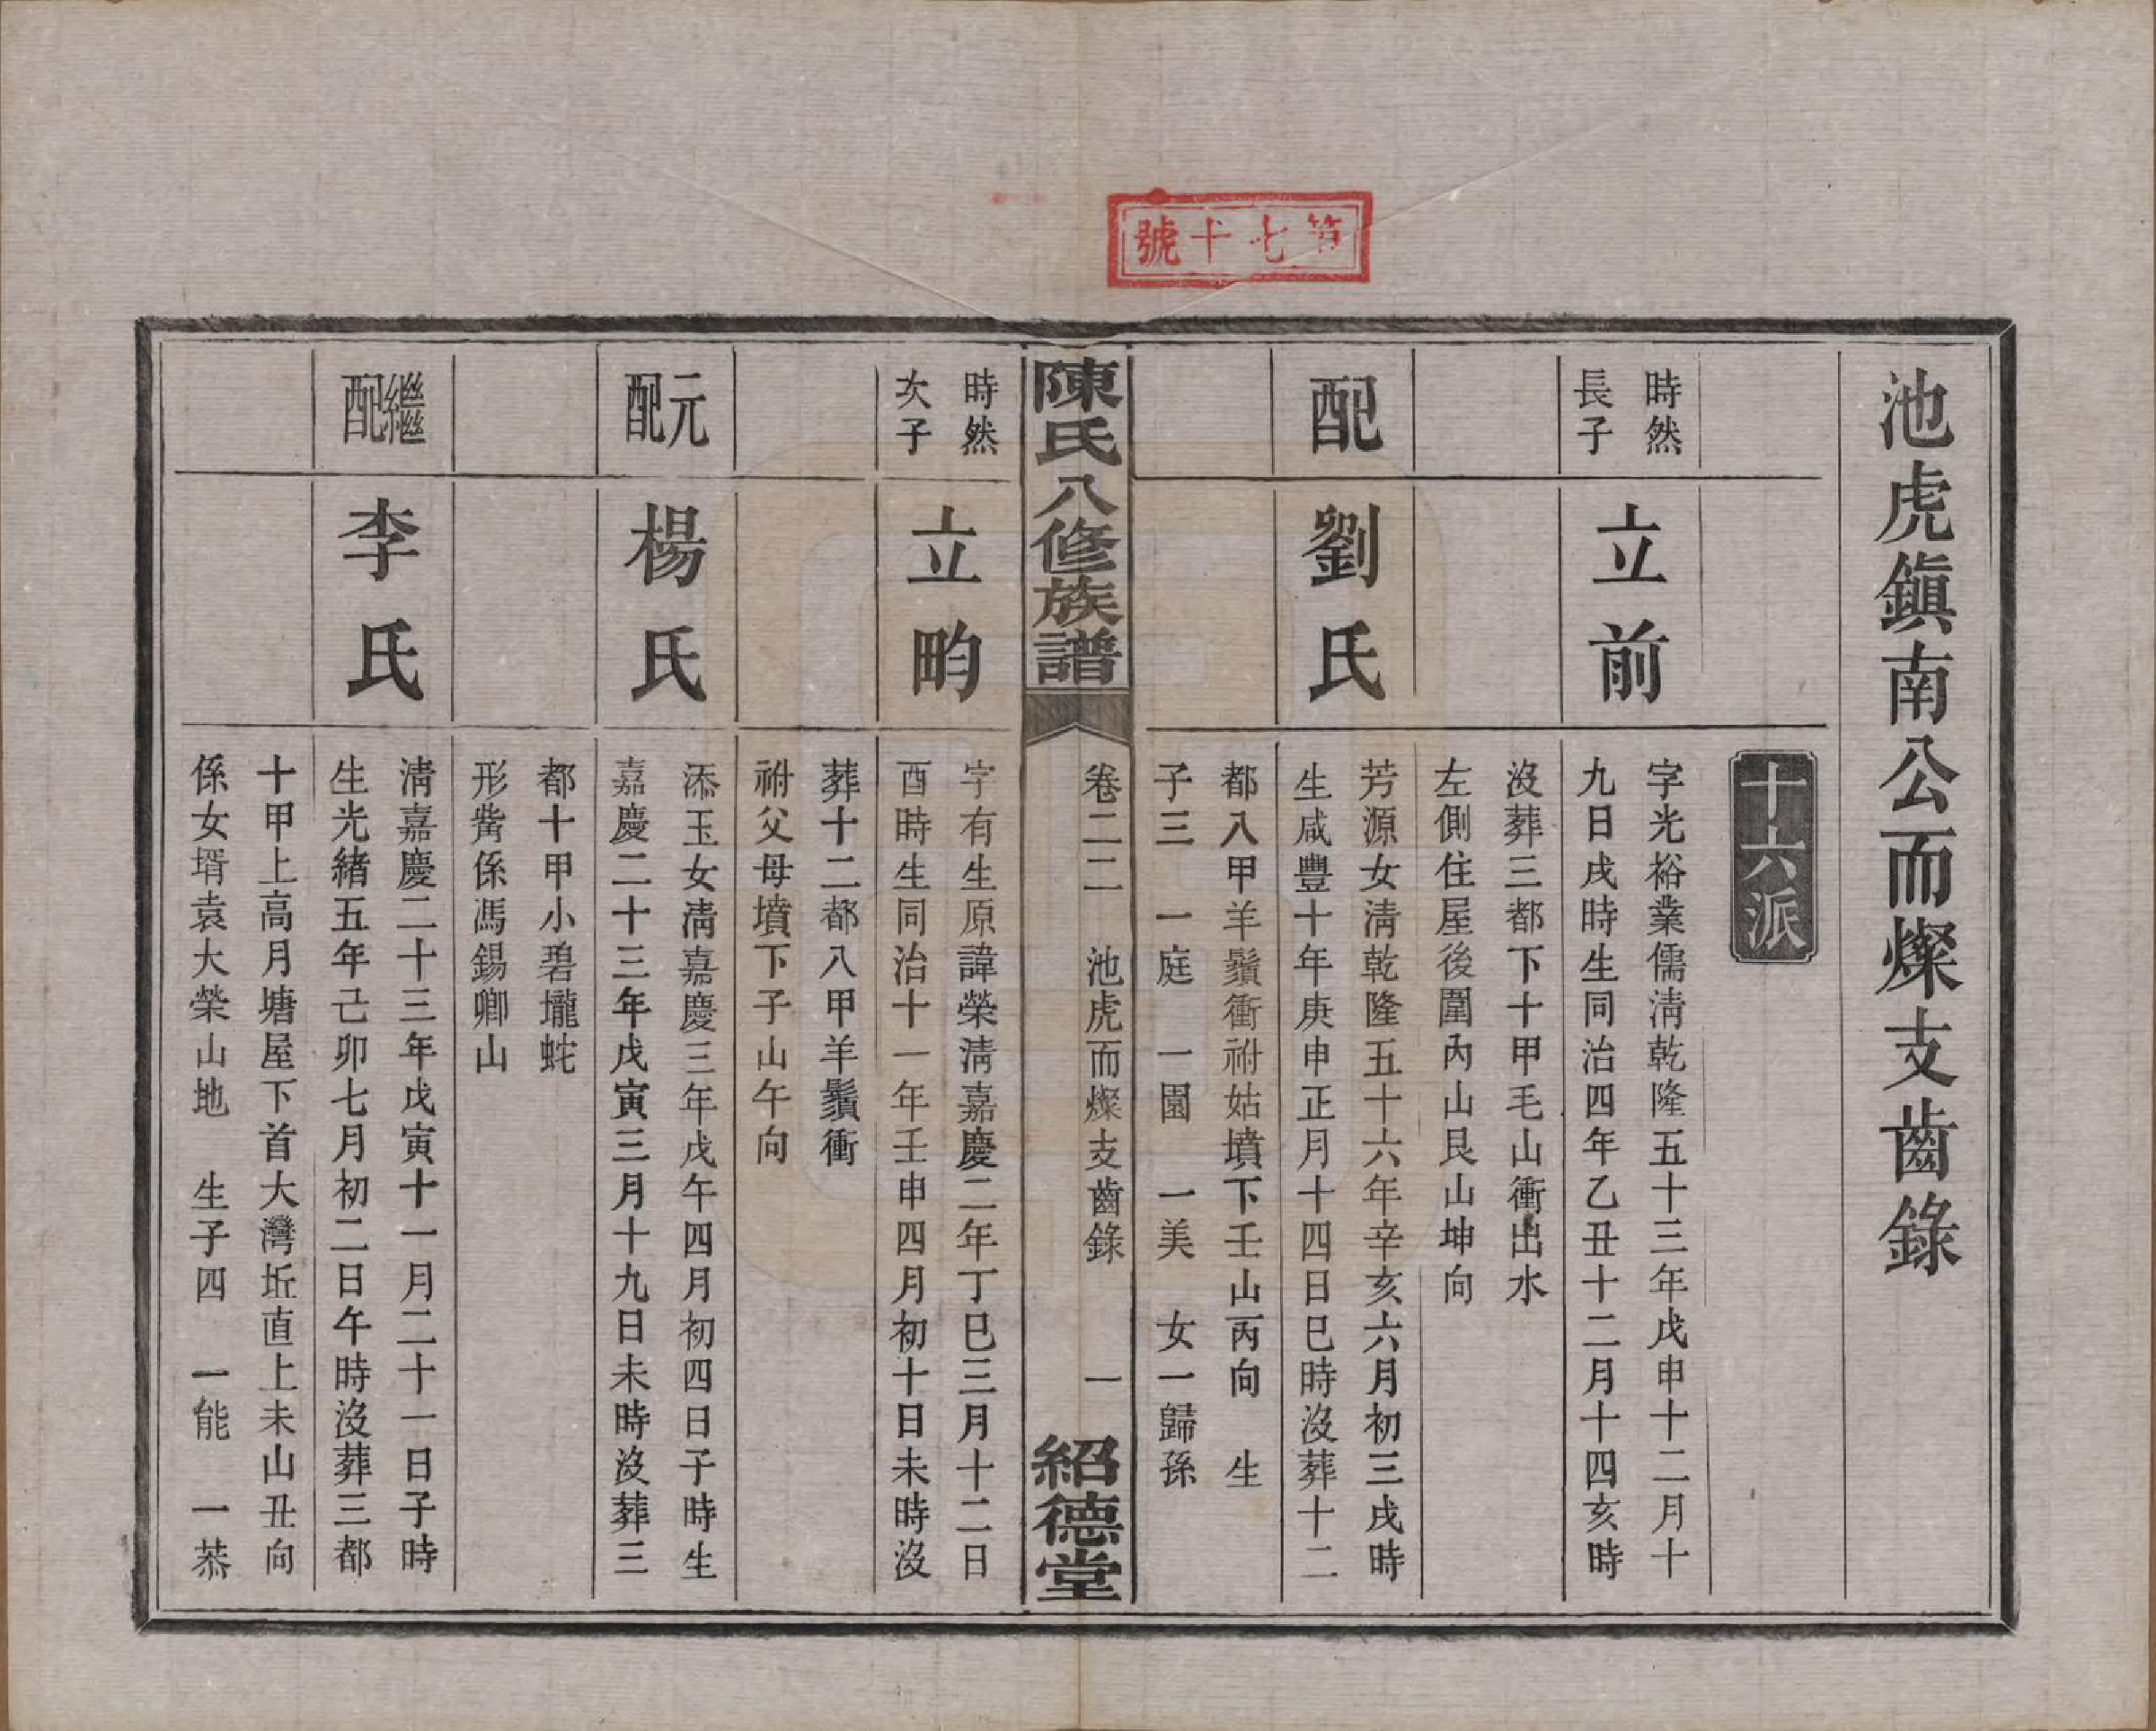 第七十號
池虎鎮南公而燦支齒錄
十六派
時然
長子
立前
字光裕業儒清乾隆五十三年戊申十二月十
九日戌時生同治四年乙丑十二月十四亥時
沒葬三都下十甲毛山衝出水
左側住屋後圍內山艮山坤向
配
劉氏
芳源女清乾隆五十六年辛亥六月初三戌時
生咸豐十年庚申正月十四日巳時沒葬十二
都八甲羊鬚衝祔姑墳下壬山丙向 生
子三 一庭 一園 一美 女一歸孫
陳氏八修族譜
卷二二 池虎而燦支齒錄 一
紹德堂
時然
次子
立畇
字有生原諱榮清嘉慶二年丁巳三月十二日
酉時生同治十一年壬申四月初十日未時沒
葬十二都八甲羊鬚衝
祔父母墳下子山午向
元配
楊氏
添玉女清嘉慶三年戊午四月初四日子時生
嘉慶二十三年戊寅三月十九日未時沒葬三
都十甲小碧壠蛇
形嘴係馮錫卿山
繼配
李氏
清嘉慶二十三年戊寅十一月二十一日子時
生光緒五年己卯七月初二日午時沒葬三都
十甲上高月塘屋下首大灣坵直上未山丑向
係女壻袁大榮山地 生子四 一能 一恭